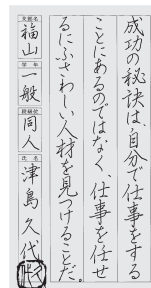 成功の秘訣は、自分で仕事をする
ことにあるのではなく、仕事を任せ
るにふさわしい人材を見つけることだ。
支部名
福山
学年
一般
段級位
同人
氏名
津島久代